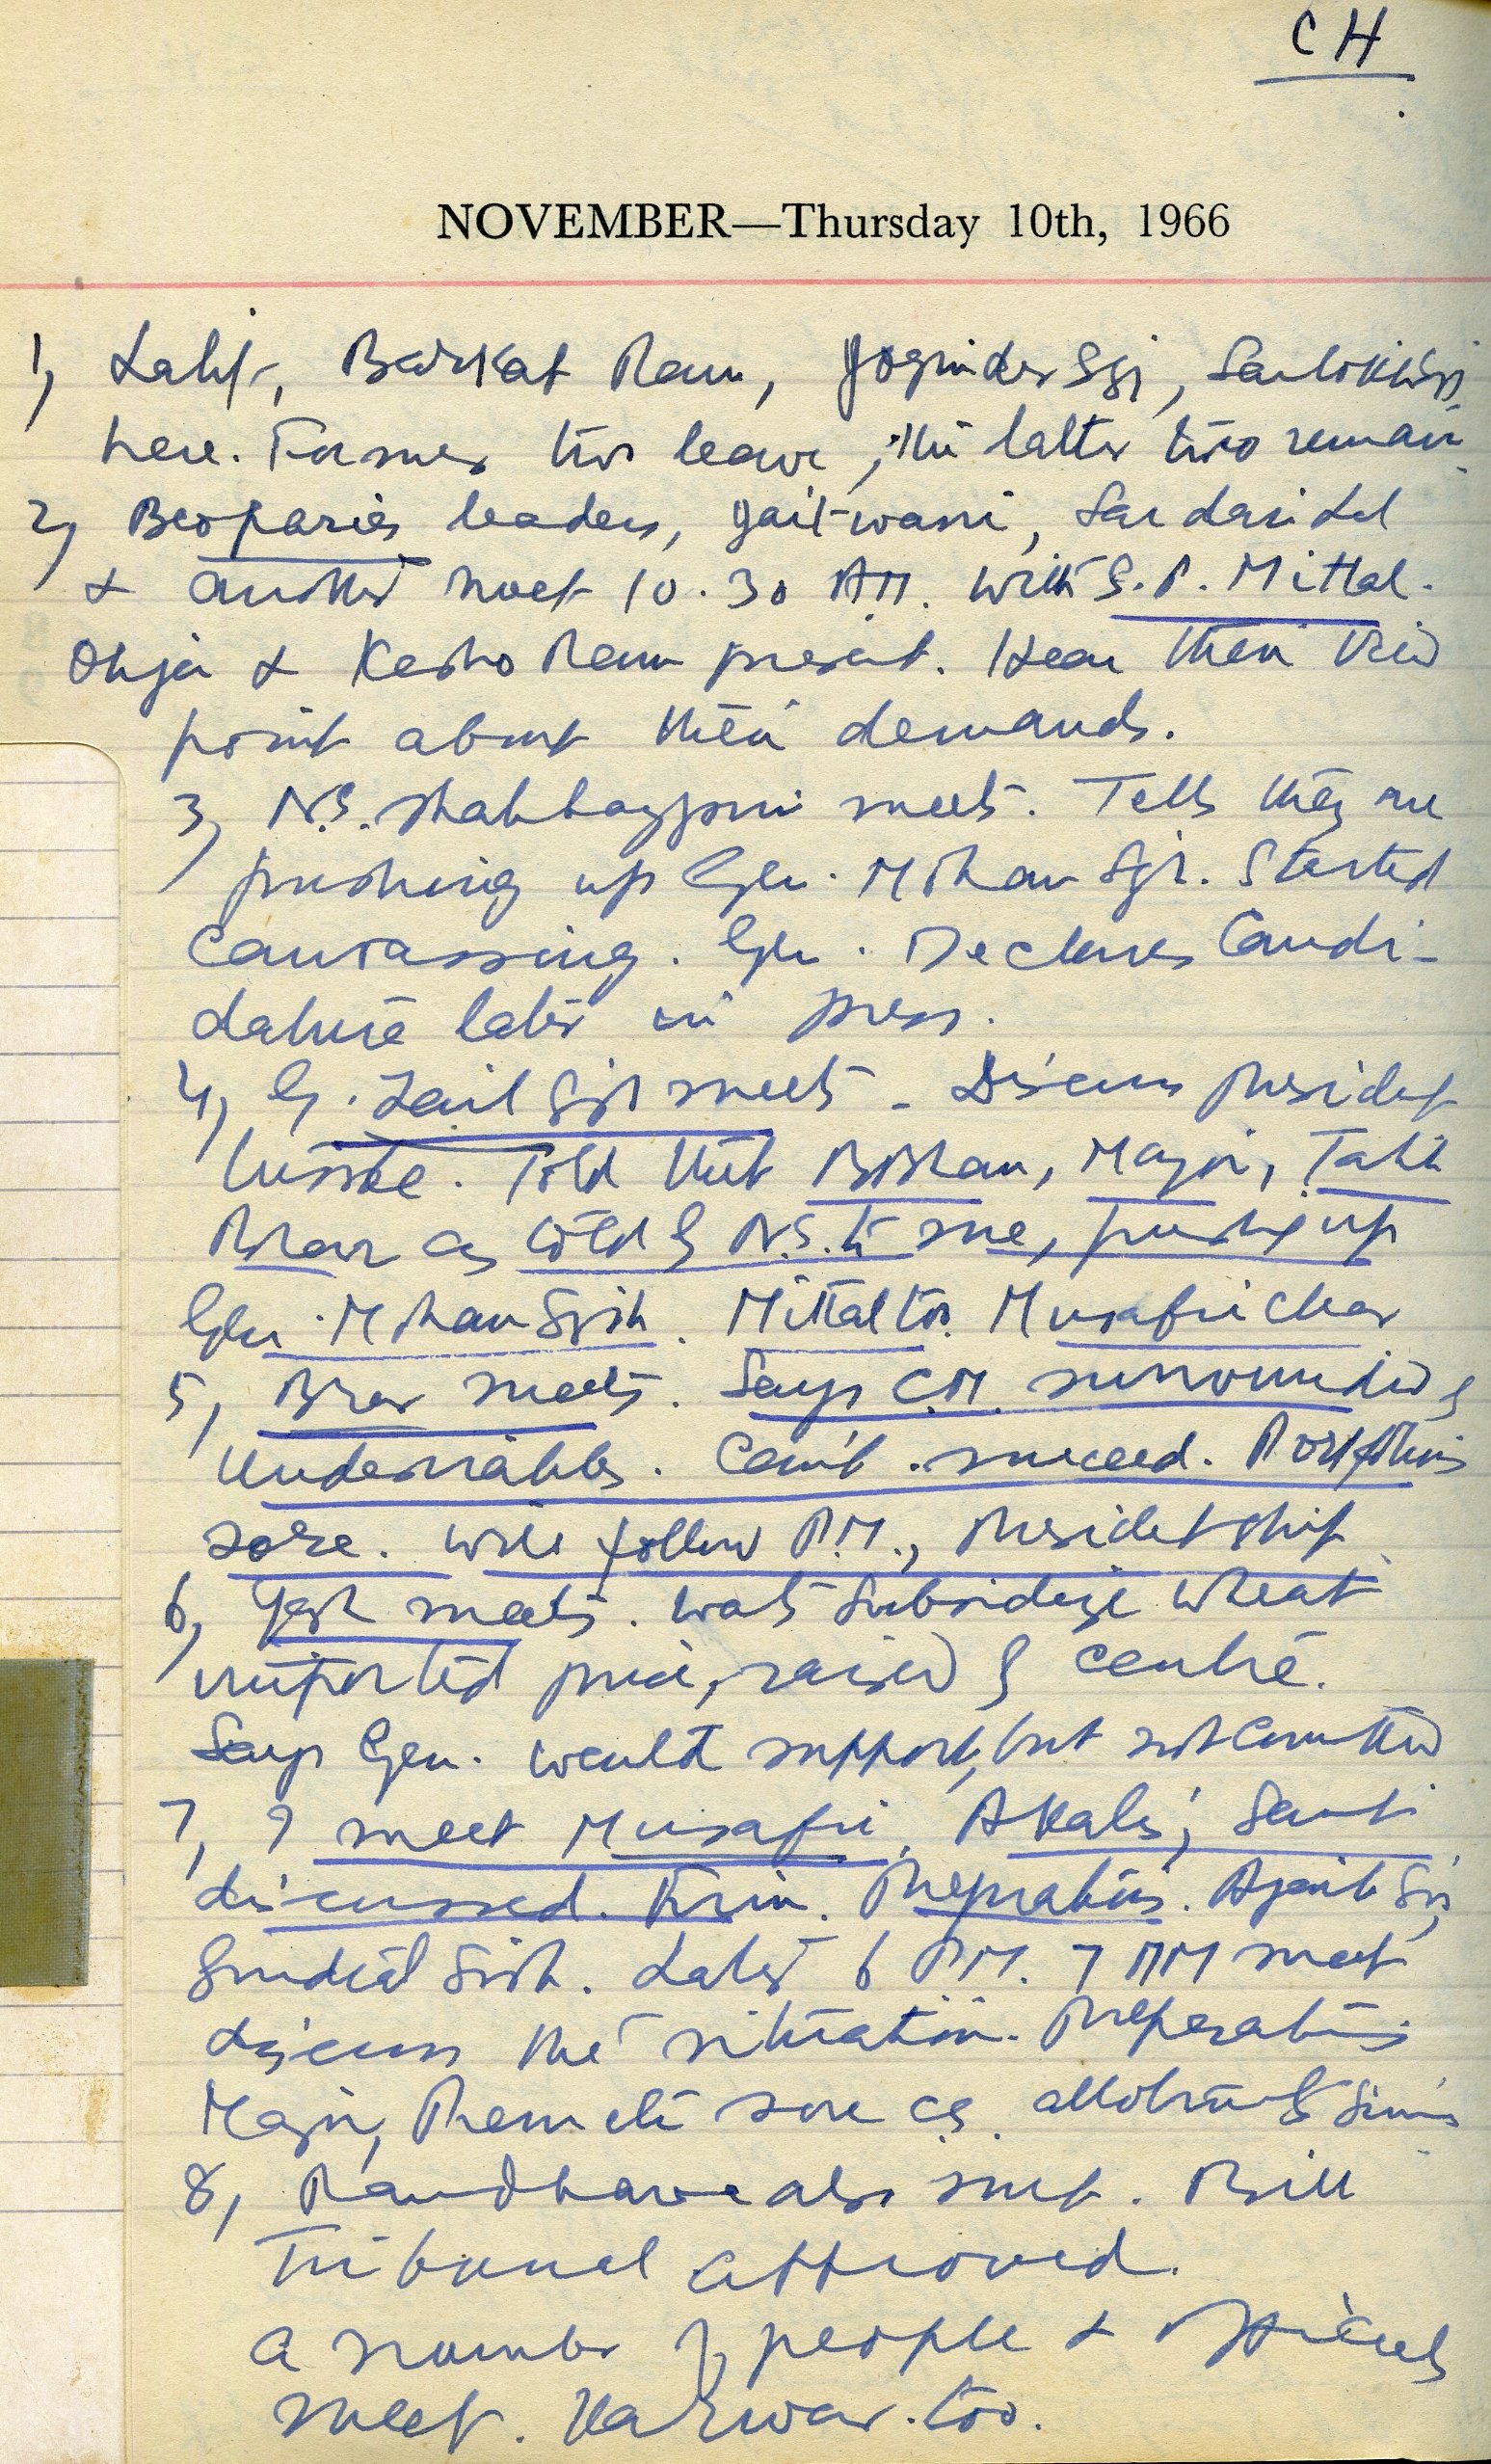 CH
NOVEMBER—Thursday 10th, 1966
1, Barkat Ram, Joginder Sgr,
here. Former two leave, the latter two remain
2, Beoparies leaders, Jaitwani, Sardari Lal
& another meet 10.30 A.M. with S.P. Mittal.
Ohja & Kesho Ram present. Hear their view
point about their demands.
3, N.S. meets. Tells they are
pushing up Gen. Mohan Sgh. Started
Canvassing. Gen. Declares Candi-
dature later in press.
4, G. Zail Sgh meets - Discuss President
tussle. Told that Major,
Brar as told by N.S. to me, pushing up
Gen. Mohan Singh. Mittal too. Musafir clear
5, Brar meets. Says C.M. surrounded by
undesirables. Can't succeed. Portfolios
sore. Will follow P.M., Presidentship
6, Yash meets. Wants Subsidize wheat
imported price, raised by centre.
Says Gen. would support, but not committed
7, I meet Musafir. Akalis, Sant
discussed. Firm. Preparations. Ajaib Sgh,
Gurdial Singh. Later 6 P.M. 7 PM meet
discuss the situation. Preparations
Major, sore as allotment
8, Randhawa also met. Bill
Tribunal approved.
a number of people & officials
meet. too.